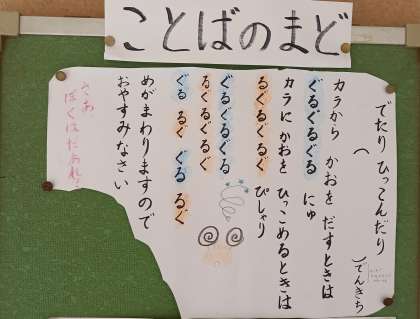 ことばのまど
でたり ひっこんだり
(　　　)てんきち
カラから かおを だすときは
ぐるぐるぐる にゅ
カラに かおを ひっこめるときは
るぐるぐるぐ ぴしゃり
ぐるぐるぐる
るぐるぐるぐ
ぐる るぐ ぐる るぐ
めがまわりますので
おやすみなさい
さあ
ぼくはだあれ?